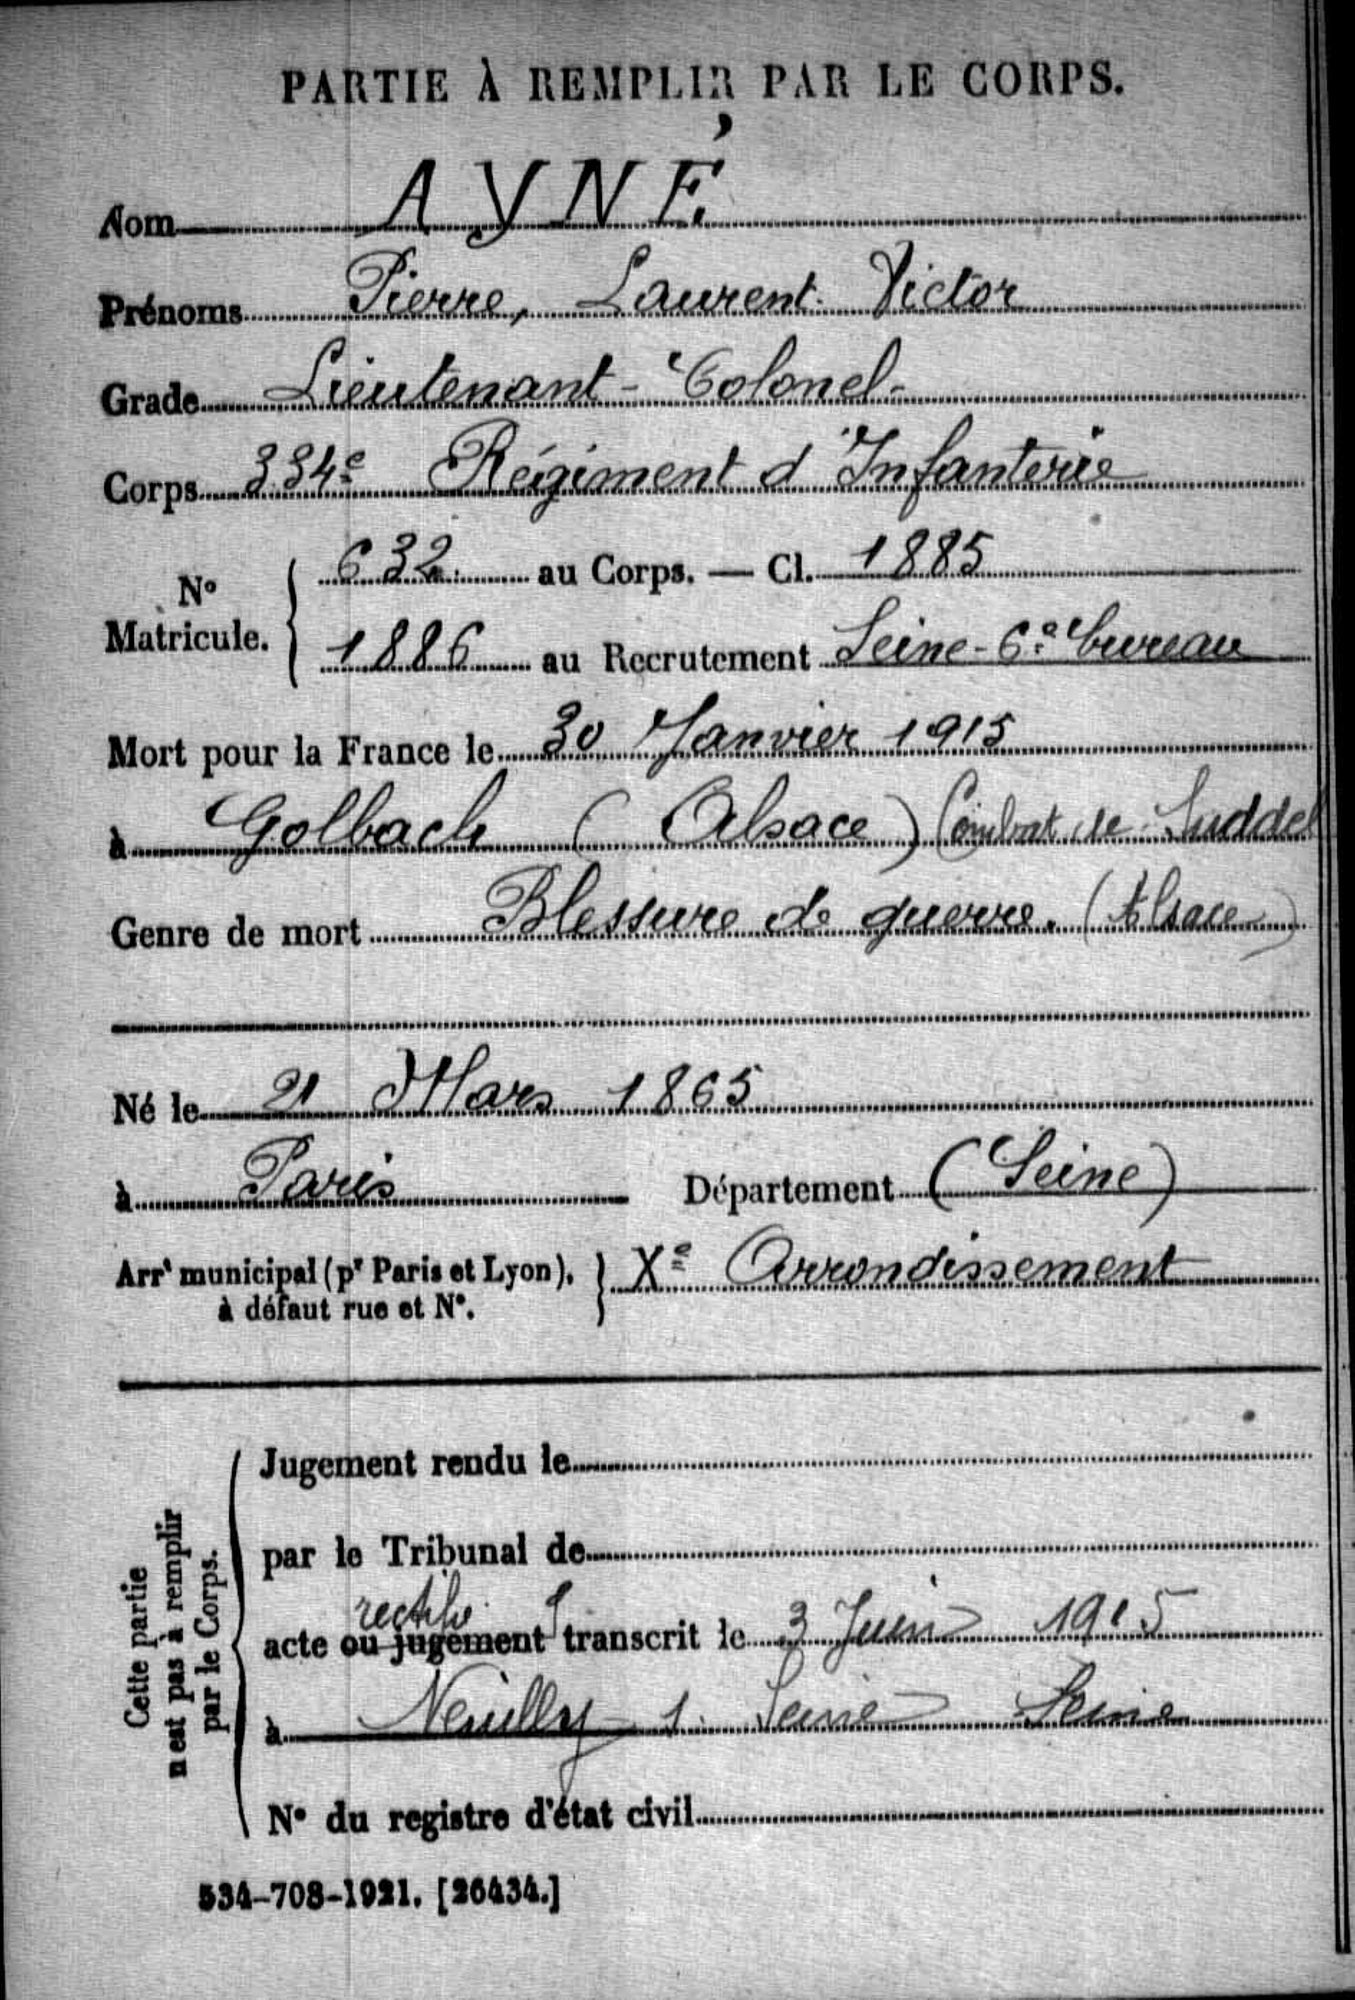 PARTIE À REMPLIR PAR LE CORPS.
Nom AYNÉ
Prénoms Pierre, Laurent Victor
Grade Lieutenant-Colonel
Corps 334e Régiment d'Infanterie
No Matricule. 632 au Corps. — Cl. 1885
1886 au Recrutement Seine-6e bureau
Mort pour la France le 30 Janvier 1915
à Golbach (Alsace) Combat de Suddel
Genre de mort Blessure de guerre. (Alsace)
Né le 21 Mars 1865
à Paris Département (Seine)
Arrt municipal (pr Paris et Lyon), à défaut rue et No. Xe Arrondissement
Cette partie n'est pas à remplir par le Corps.
Jugement rendu le
par le Tribunal de
rectifié
acte ou jugement transcrit le 3 Juin 1915
à Neuilly s. Seine Seine
No du registre d'état civil
534-708-1921. [26434.]